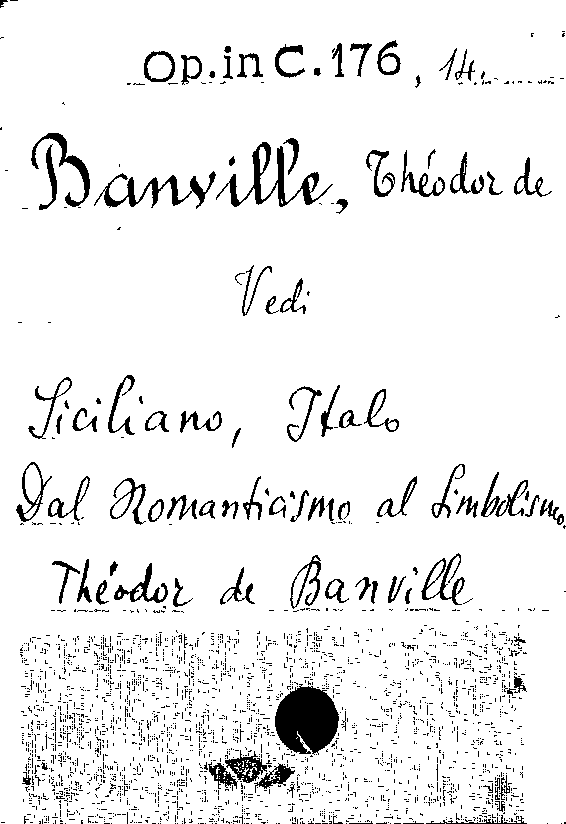 Op. in C. 176, 14.
Banville, Théodor de
Vedi
Siciliano, Italo
Dal Romanticismo al Simbolismo.
Théodor de Banville